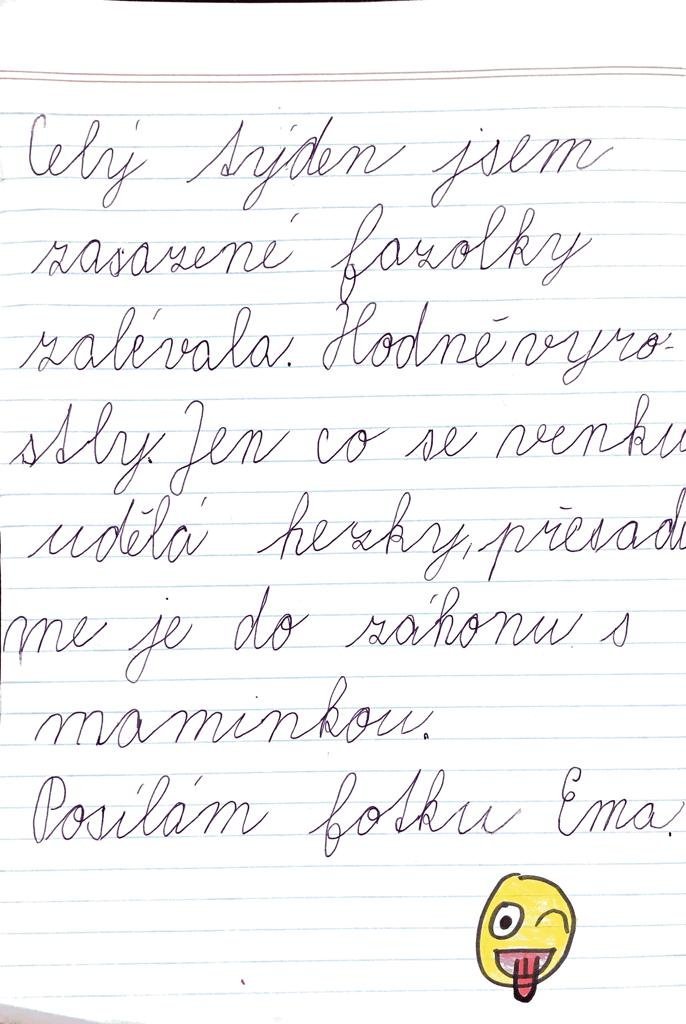 Celý týden jsem
zasazené fazolky
zalévala. Hodně vyro-
stly. Jen co se venku
udělá hezky, přesadí
me je do záhonu s
maminkou.
Posílám fotku Ema.